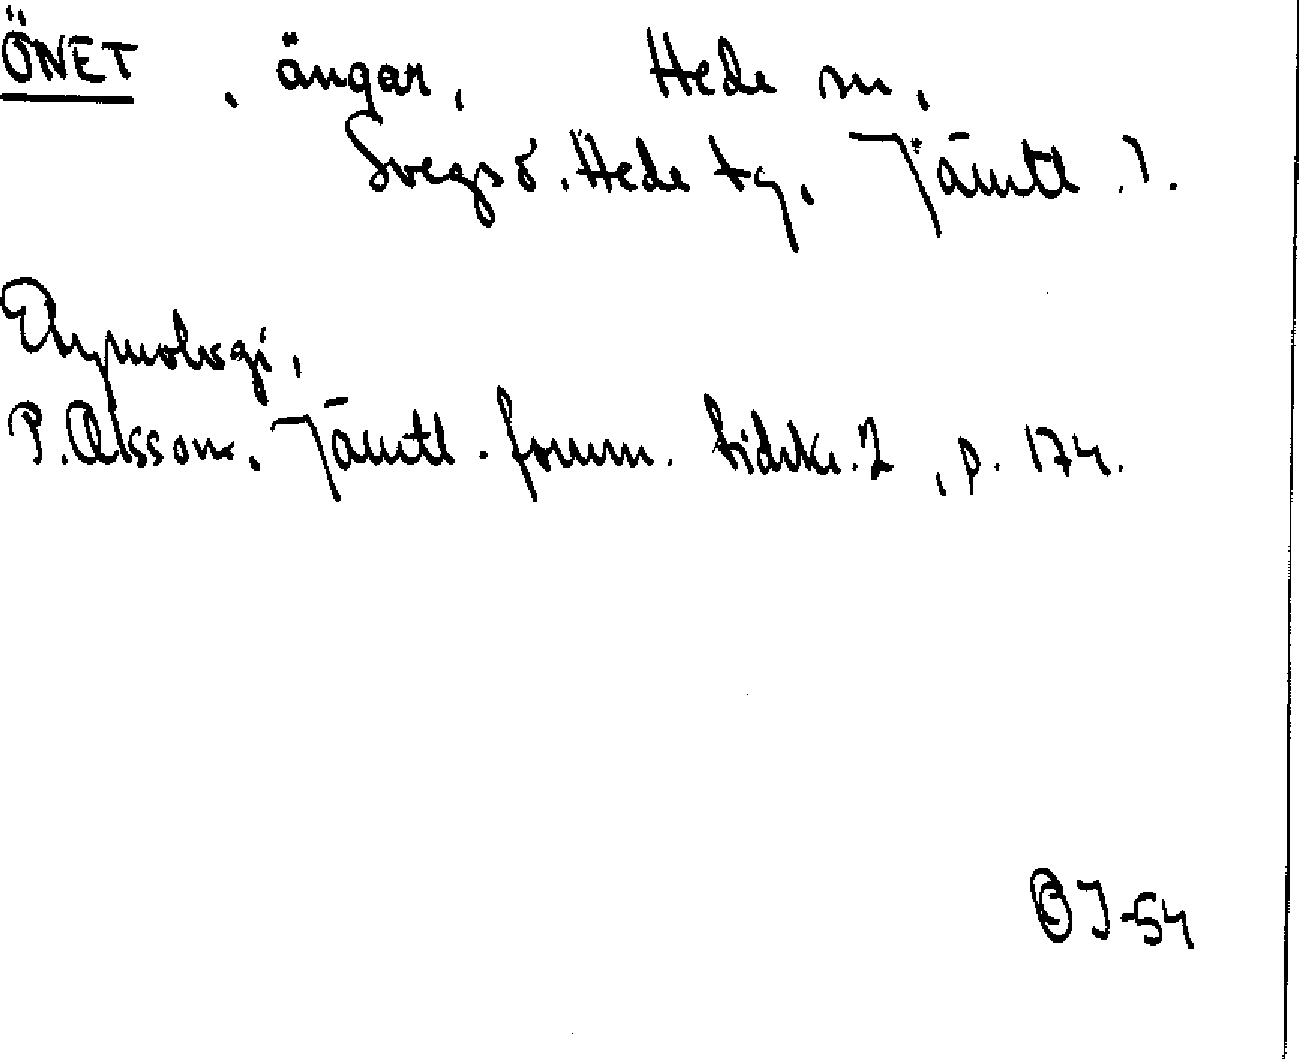 ÖNET, ängar, Hede sn,
Svegs o. Hede tg, Jämtl. l.
Etymologi,
P. Olsson. Jämtl. fornm. tidskr. 2, p. 174.
-54